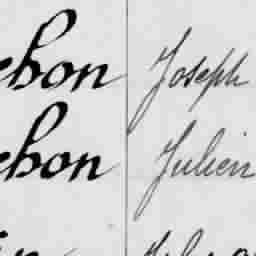 ebon Joseph
ebon Julien